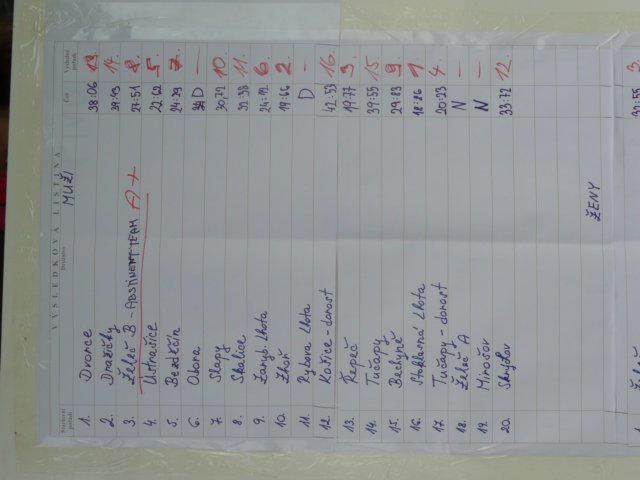 VÝSLEDKOVÁ LISTINA
Startovní pořadí Družstvo Čas Výsledné pořadí
MUŽI
1. Dvorce 38:06 13.
2. Dražičky 39:13 14.
3. Želeč B - ABSTINENT TEAM A+ 27:51 8.
4. Ústrašice 22:62 5.
5. Bezděčín 24:29 7.
6. Obora D -
7. Slapy 30,72 10.
8. Skalice 32:38 11.
9. Zaryb. Lhota 24:12 6.
10. Zhoř 19:66 2.
11. Rybova Lhota D -
12. Košice - dorost 42:53 16.
13. Řepeč 19:77 3.
14. Tučapy 39:55 15.
15. Bechyně 29:83 9.
16. Sedlečná Lhota 18:86 1.
17. Tučapy - dorost 20:23 4.
18. Želeč A N -
19. Mirošov N -
20. 33:72 12.
ŽENY
32:55 3.